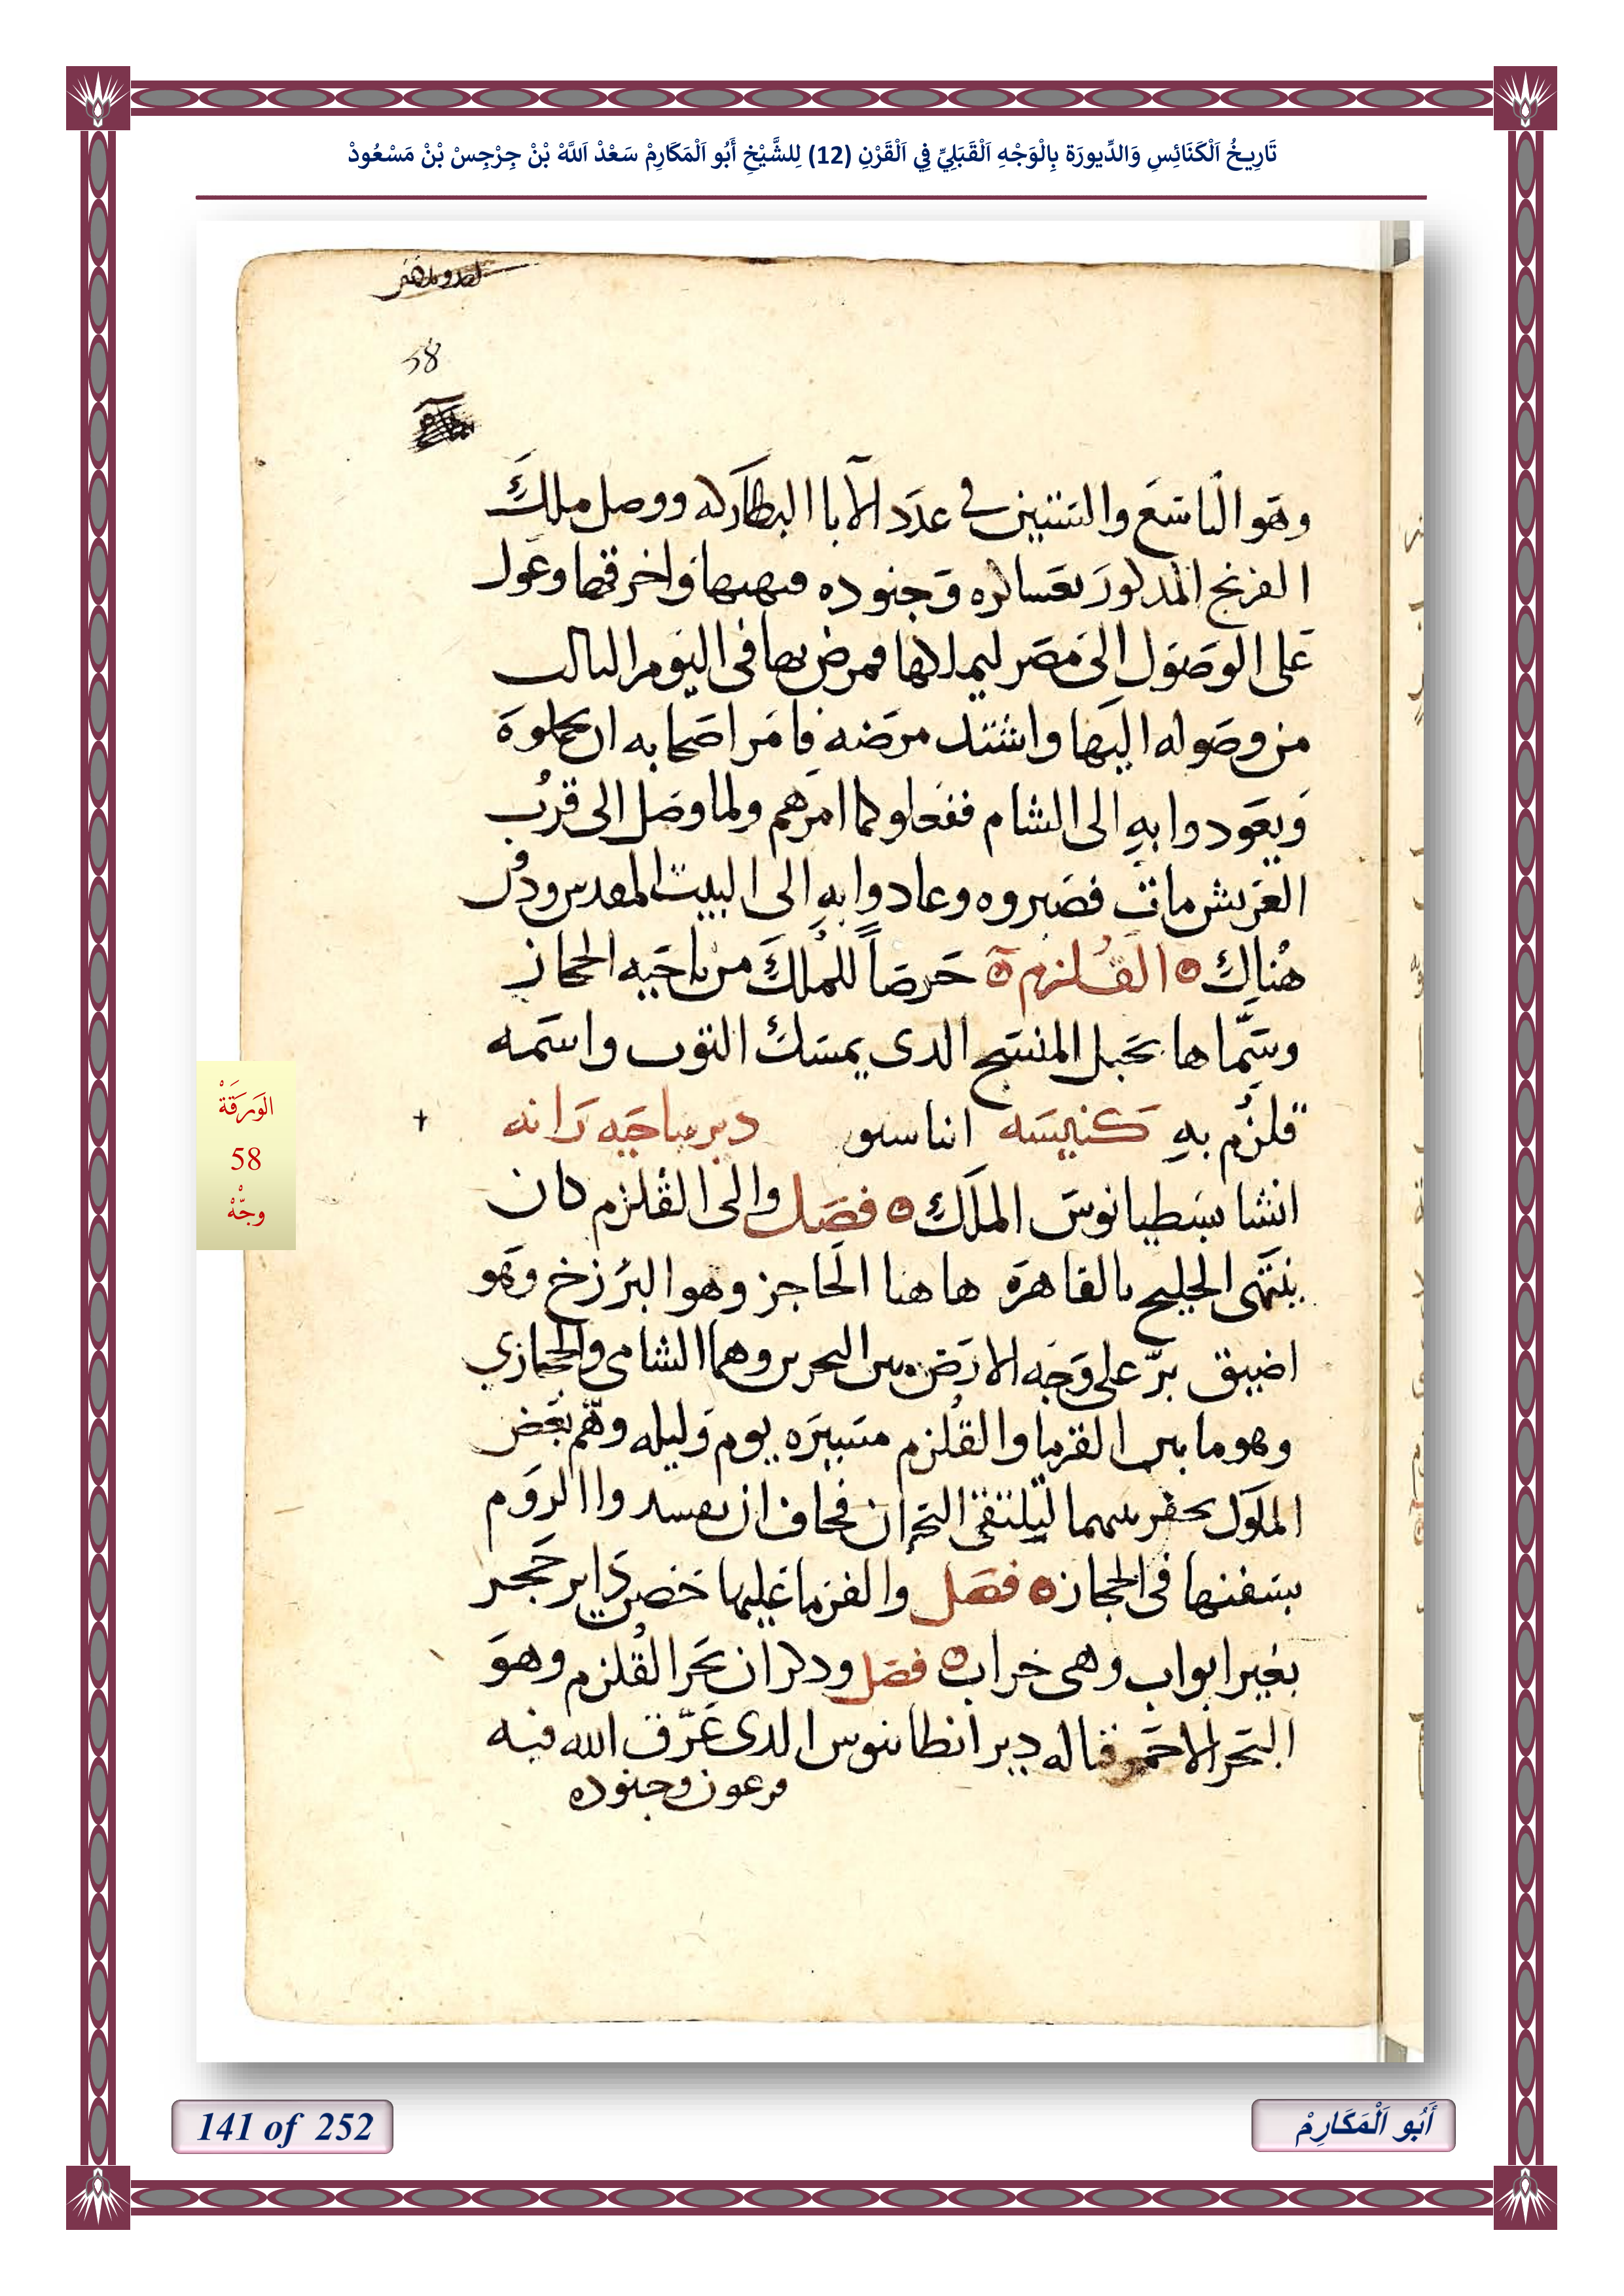 تَارِيخُ اَلْكَنَائِسِ وَالدِّيورَة بِالْوَجْهِ اَلْقَبَلِيِّ فِي اَلْقَرْنِ (12) لِلشَّيْخِ أَبُو اَلْمَكَارِمْ سَعْدْ اَللَّهْ بْنْ جِرْجِسْ بْنْ مَسْعُودْ
58
وهو التاسع والستين في عدد الآبا البطاركه ووصل ملك
الفرنج المذكور بعساكره وجنوده فنهبها واخرقها وعول
على الوصول الى مصر ليملكها فمرض بها في اليوم الثالث
من وصوله اليها واشتد مرضه فامر اصحابه ان يحملوه
ويعودوا به الى الشام ففعلوا كما امرهم ولما وصل الى قرب
العريش مات فصبروه وعادوا به الى البيت المقدس ودفن
هناك القلزم حرصاً للملك من ناحيه الحجاز
وسماها بحبل المنسج الدى يمسك الثوب واسمه
قلزم به كنيسه اتناسيو دير بناحيه رانه
انشا يسطيانوس الملك فصل والى القلزم كان
ينتهى الخليج بالقاهره هاهنا الحاجز وهو البرزخ وهو
اضيق بر على وجه الارض بين البحرين وهما الشامى والحجازي
وهو ما بين الفرما والقلزم مسيره يوم وليله وهم بعض
الملوك بحفر بينهما ليلتقى البحران فخاف ان يفسدوا الروم
بسفنها في الحجاز فصل والفرما عليها حصن داير حجر
بغير ابواب وهى خراب فصل وذكر ان بحر القلزم وهو
البحر الاحمر قاله دير انطانيوس الدى غرق الله فيه
فرعون وجنوده
الوَرَقَةْ
58
وجّهْ
141 of 252
أَبُو اَلْمَكَارِمْ